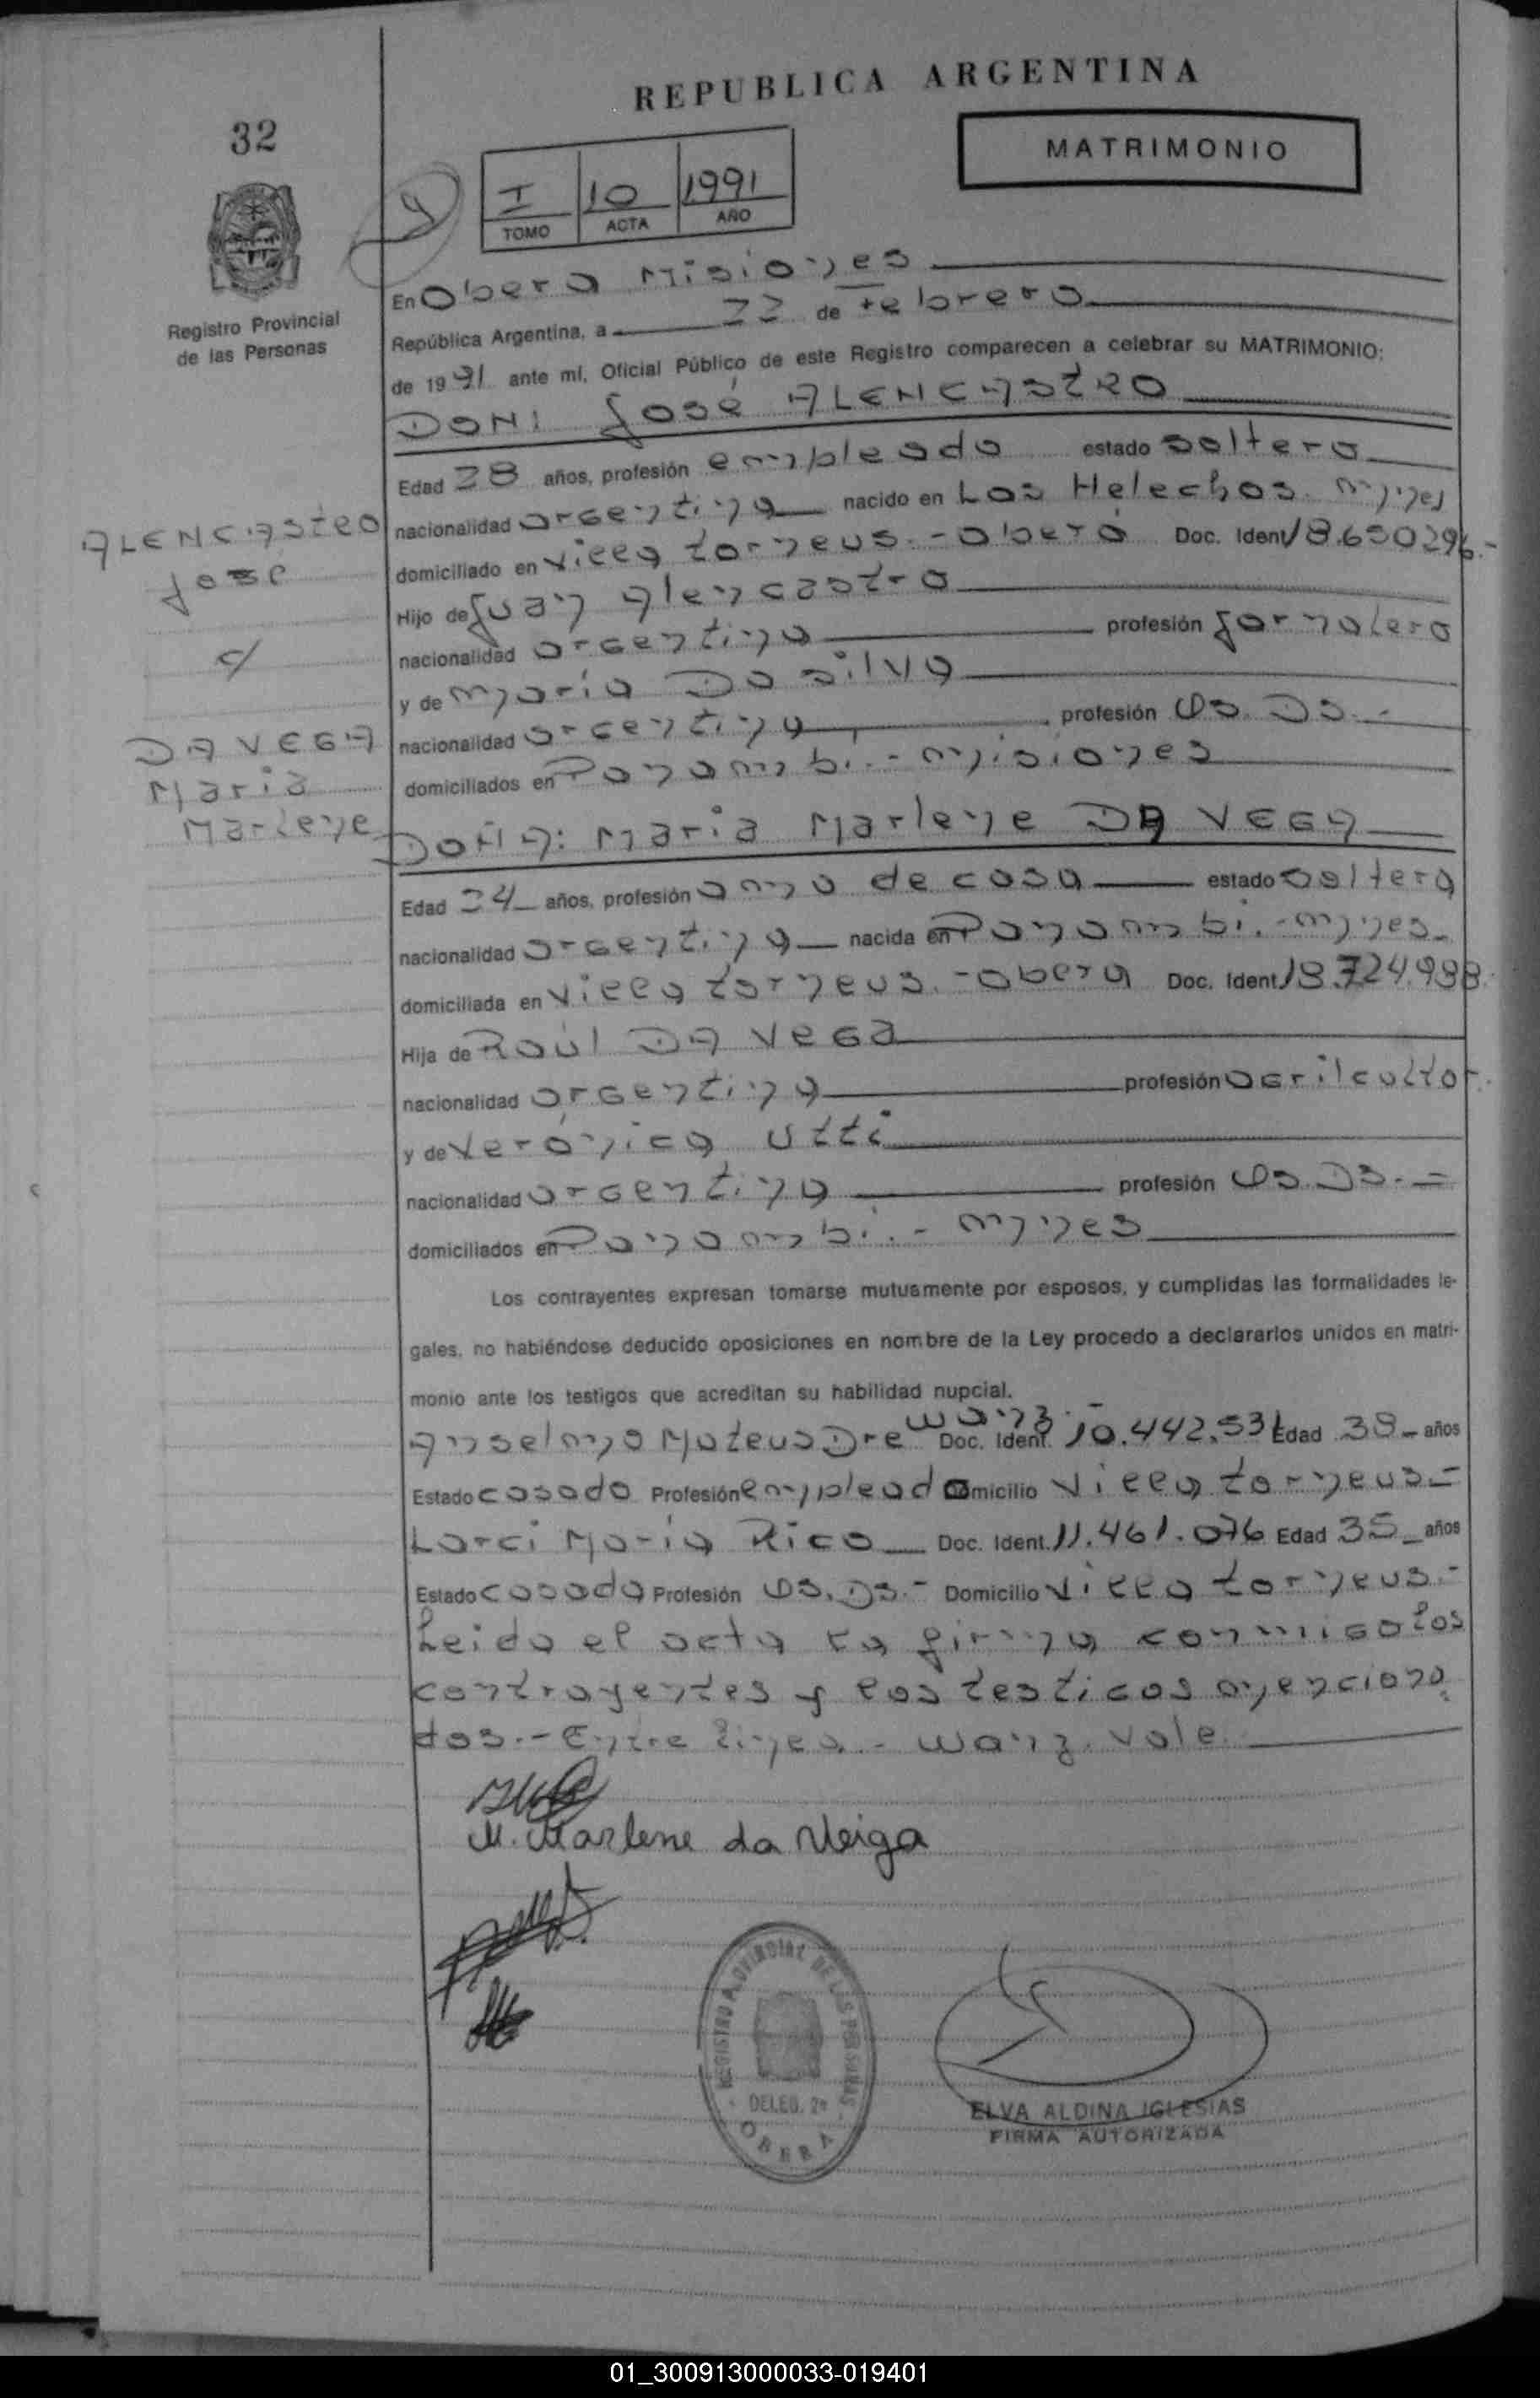 REPUBLICA ARGENTINA
32
MATRIMONIO
I 10 1991
TOMO ACTA AÑO
Registro Provincial
de las Personas
En Oberá Misiones
República Argentina, a 22 de Febrero
de 1991 ante mí, Oficial Público de este Registro comparecen a celebrar su MATRIMONIO:
DON: José ALENCASTRO
Edad 28 años, profesión empleado estado soltero
nacionalidad argentina nacido en Los Helechos. Mnes
domiciliado en Villa Torneus.- Oberá Doc. Ident 18.650296.-
Hijo de Juan Alencastro
nacionalidad argentina profesión Jornalero
y de María Da Silva
nacionalidad argentina profesión Qs. Ds.-
domiciliados en Panambí.- Misiones
ALENCASTRO
José
c/
DA VEGA
Maria
Marlene
DOÑA: Maria Marlene DA VEGA
Edad 24 años, profesión ama de casa estado soltera
nacionalidad argentina nacida en Panambí.- Mnes.
domiciliada en Villa Torneus.- Obera Doc. Ident 18.724.998.
Hija de Raúl DA VEGA
nacionalidad argentina profesión agrilcultor.
y de Verónica Utti
nacionalidad argentina profesión Qs. Ds.-
domiciliados en Panambí.- Mnes
Los contrayentes expresan tomarse mutuamente por esposos, y cumplidas las formalidades le-
gales, no habiéndose deducido oposiciones en nombre de la Ley procedo a declararlos unidos en matri-
monio ante los testigos que acreditan su habilidad nupcial.
wanz.-
Anselmo Mateus Dre Doc. Ident. 10.442.531 Edad 38 años
Estado casado Profesión empleado Domicilio Villa Torneus.-
Larci María Rico Doc. Ident. 11.461.076 Edad 35 años
Estado casada Profesión Qs. Ds.- Domicilio Villa Torneus.-
Leida el acta la firman conmigo los
contrayentes y los testigos menciona
dos.- Entre linea.- wanz. Vale.
M. Marlene da Veiga
REGISTRO PROVINCIAL DE LAS PERSONAS
DELEG. 2ª
OBERA
ELVA ALDINA IGLESIAS
FIRMA AUTORIZADA
01_300913000033-019401